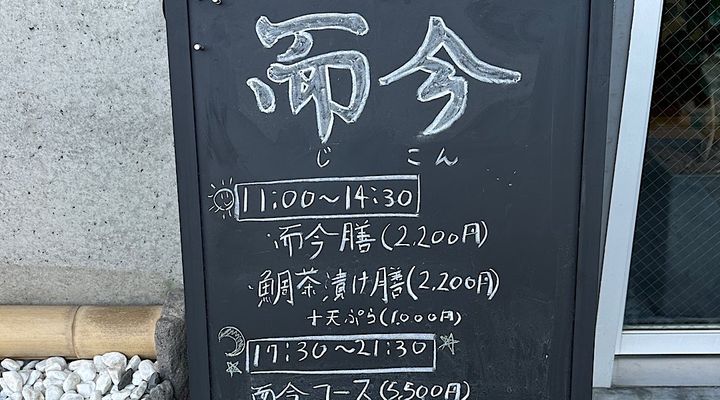 而今
じこん
11:00～14:30
・而今膳(2,200円)
・鯛茶漬け膳(2,200円)
+天ぷら(1,000円)
17:30～21:30
而今コース(5,500円)